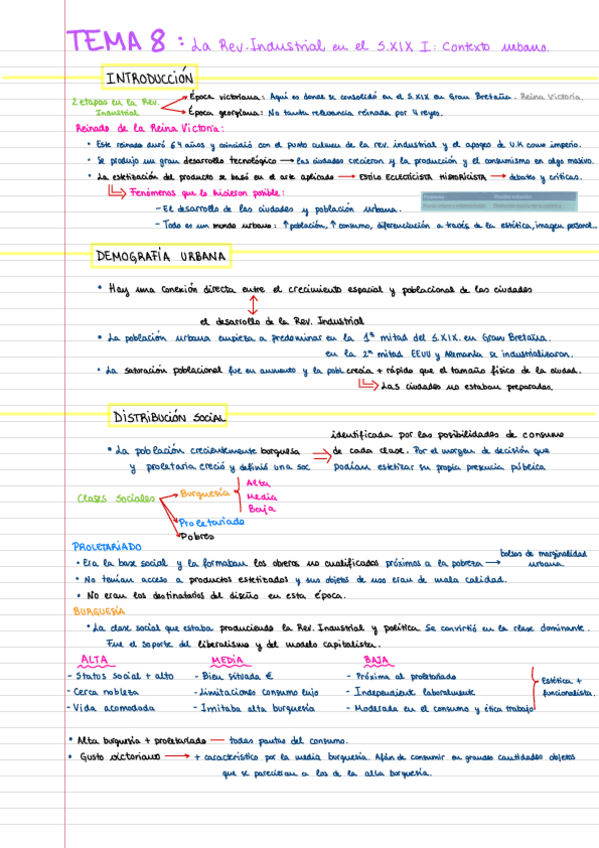 TEMA 8: La Rev. Industrial en el S.XIX I: Contexto urbano.
INTRODUCCIÓN
2 etapas en la Rev. Industrial
Época victoriana: Aquí es donde se consolidó en el S.XIX en Gran Bretaña. Reina Victoria.
Época georgiana: No tanta relevancia reinada por 4 reyes.
Reinado de la Reina Victoria:
• Este reinado duró 64 años y coincidió con el punto culmen de la rev. industrial y el apogeo de U.K como imperio.
• Se produjo un gran desarrollo tecnológico → las ciudades crecieron y la producción y el consumismo en algo masivo.
• La estetización del producto se basó en el arte aplicado → ESTILO ECLECTICISTA HISTORICISTA → debates y críticas.
Fenómenos que la hicieron posible:
- El desarrollo de las ciudades y población urbana.
- Todo es un mundo urbano: ↑ población, ↑ consumo, diferenciación a través de la estética, imagen personal...
DEMOGRAFÍA URBANA
• Hay una conexión directa entre el crecimiento espacial y poblacional de las ciudades
el desarrollo de la Rev. Industrial
• La población urbana empieza a predominar en la 1ª mitad del S.XIX. en Gran Bretaña.
en la 2ª mitad EEUU y Alemania se industrializaron.
• La saturación poblacional fue en aumento y la pobl. crecía + rápido que el tamaño físico de la ciudad.
Las ciudades no estaban preparadas.
DISTRIBUCIÓN SOCIAL
• La población crecientemente burguesa
y proletaria creció y definió una soc
identificada por las posibilidades de consumo
de cada clase. Por el margen de decisión que
podían estetizar su propia presencia pública
Clases sociales
Burguesía
Alta
Media
Baja
Proletariado
Pobres
PROLETARIADO
• Era la base social y la formaban los obreros no cualificados próximos a la pobreza → bolsas de marginalidad urbana
• No tenían acceso a productos estetizados y sus objetos de uso eran de mala calidad.
• No eran los destinatarios del diseño en esta época.
BURGUESÍA
• La clase social que estaba produciendo la Rev. Industrial y política. Se convirtió en la clase dominante.
Fue el soporte del liberalismo y del modelo capitalista.
ALTA
- Status social + alto
- Cerca nobleza
- Vida acomodada
MEDIA
- Bien situada €
- Limitaciones consumo lujo
- Imitaba alta burguesía
BAJA
- Próxima al proletariado
- Independiente laboralmente
- Moderada en el consumo y ética trabajo
Estética +
funcionalista.
• Alta burguesía + proletariado — todas pautas del consumo.
• Gusto victoriano → + característico por la media burguesía. Afán de consumir en grandes cantidades objetos
que se parecieran a los de la alta burguesía.